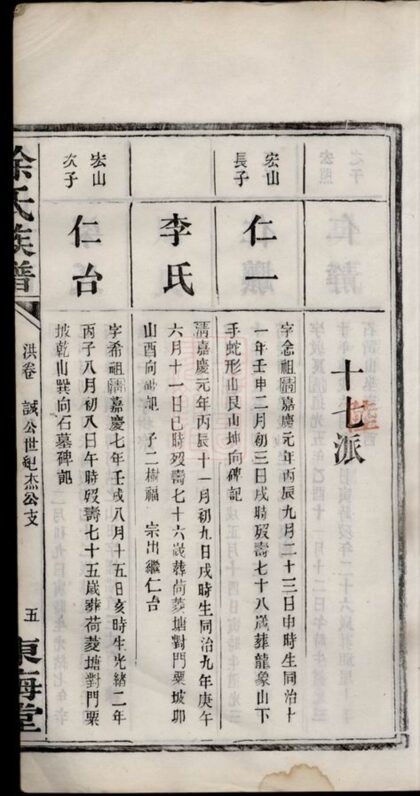 十七派
宏山
長子
仁一
字念祖清嘉慶元年丙辰九月二十三日申時生同治十
一年壬申二月初三日戌時歿壽七十八歲葬龍象山下
手蛇形山艮山坤向碑記
李氏
清嘉慶元年丙辰十一月初九日戌時生同治九年庚午
六月十一日巳時歿壽七十六歲葬荷菱塘對門栗坡卯
山酉向碑記 子二樹福 宗出繼仁台
宏山
次子
仁台
字希祖清嘉慶七年壬戌八月十五日亥時生光緒二年
丙子八月初八日午時歿壽七十五歲葬荷菱塘對門栗
坡乾山巽向石墓碑記
徐氏族譜
洪卷 誠公世紀杰公支
五
東海堂